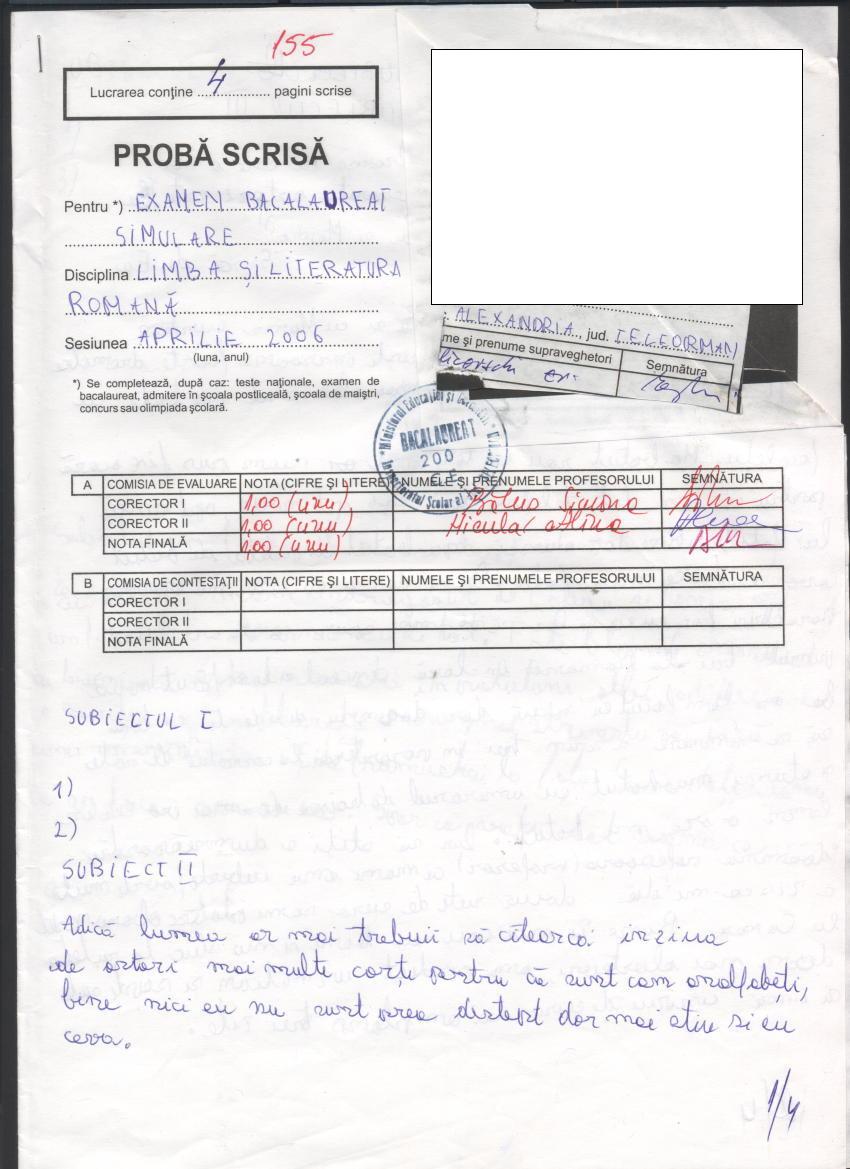 155
Lucrarea conţine ....4.... pagini scrise
PROBĂ SCRISĂ
Pentru *) EXAMEN BACALAUREAT
SIMULARE
Disciplina LIMBA ȘI LITERATURA
ROMANĂ
Sesiunea APRILIE 2006
(luna, anul)
*) Se completează, după caz: teste naţionale, examen de
bacalaureat, admitere în şcoala postliceală, şcoala de maiştri,
concurs sau olimpiada şcolară.
ALEXANDRIA, jud. TELEORMAN
me şi prenume supraveghetori Semnătura
BACALAUREAT
200
A COMISIA DE EVALUARE NOTA (CIFRE ŞI LITERE) NUMELE ŞI PRENUMELE PROFESORULUI SEMNĂTURA
CORECTOR I 1,00 (unu) Simona
CORECTOR II 1,00 (unu) Alina
NOTA FINALĂ 1,00 (unu)
B COMISIA DE CONTESTAŢII NOTA (CIFRE ŞI LITERE) NUMELE ŞI PRENUMELE PROFESORULUI SEMNĂTURA
CORECTOR I
CORECTOR II
NOTA FINALĂ
SUBIECTUL I
1)
2)
SUBIECT II
Adică lumea ar mai trebuii să citeasca in ziua
de astazi mai multe carți pentru că sunt cam analfabeți,
bine nici eu nu sunt prea distept dar mai stiu si eu
ceva.
1/4